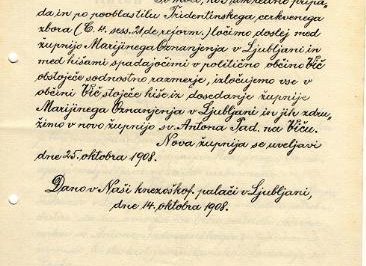 da in po pooblastilu Tridentinskega cerkvenega
zbora (C. 4. sess. 21 de reform.) ločimo doslej med
župnijo Marijinega Oznanjenja v Ljubljani in
med hišami spadajočimi v politično občino Vič
obstoječe sodnostno razmerje, izločujemo vse v
občini Vič stoječe hiše iz dosedanje župnije
Marijinega Oznanjenja v Ljubljani in jih zdru,
žimo v novo župnijo sv. Antona Pad. na Viču.
Nova župnija se uveljavi
dne 25. oktobra 1908.
Dano v Naši knezoškof. palači v Ljubljani,
dne 14. oktobra 1908.